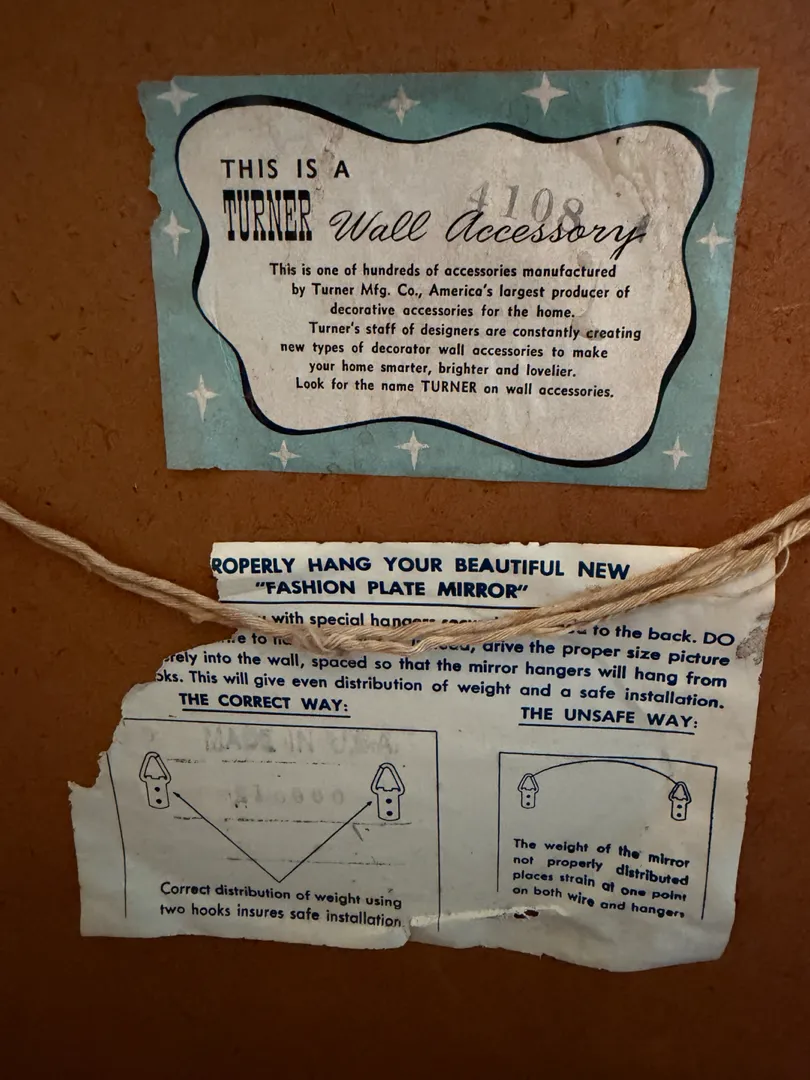 THIS IS A
TURNER Wall Accessory
4108
This is one of hundreds of accessories manufactured
by Turner Mfg. Co., America's largest producer of
decorative accessories for the home.
Turner's staff of designers are constantly creating
new types of decorator wall accessories to make
your home smarter, brighter and lovelier.
Look for the name TURNER on wall accessories.
ROPERLY HANG YOUR BEAUTIFUL NEW
"FASHION PLATE MIRROR"
with special hangers to the back. DO
to drive the proper size picture
rely into the wall, spaced so that the mirror hangers will hang from
oks. This will give even distribution of weight and a safe installation.
THE CORRECT WAY:
THE UNSAFE WAY:
MADE IN U.S.A.
Correct distribution of weight using
two hooks insures safe installation
The weight of the mirror
not properly distributed
places strain at one point
on both wire and hangers